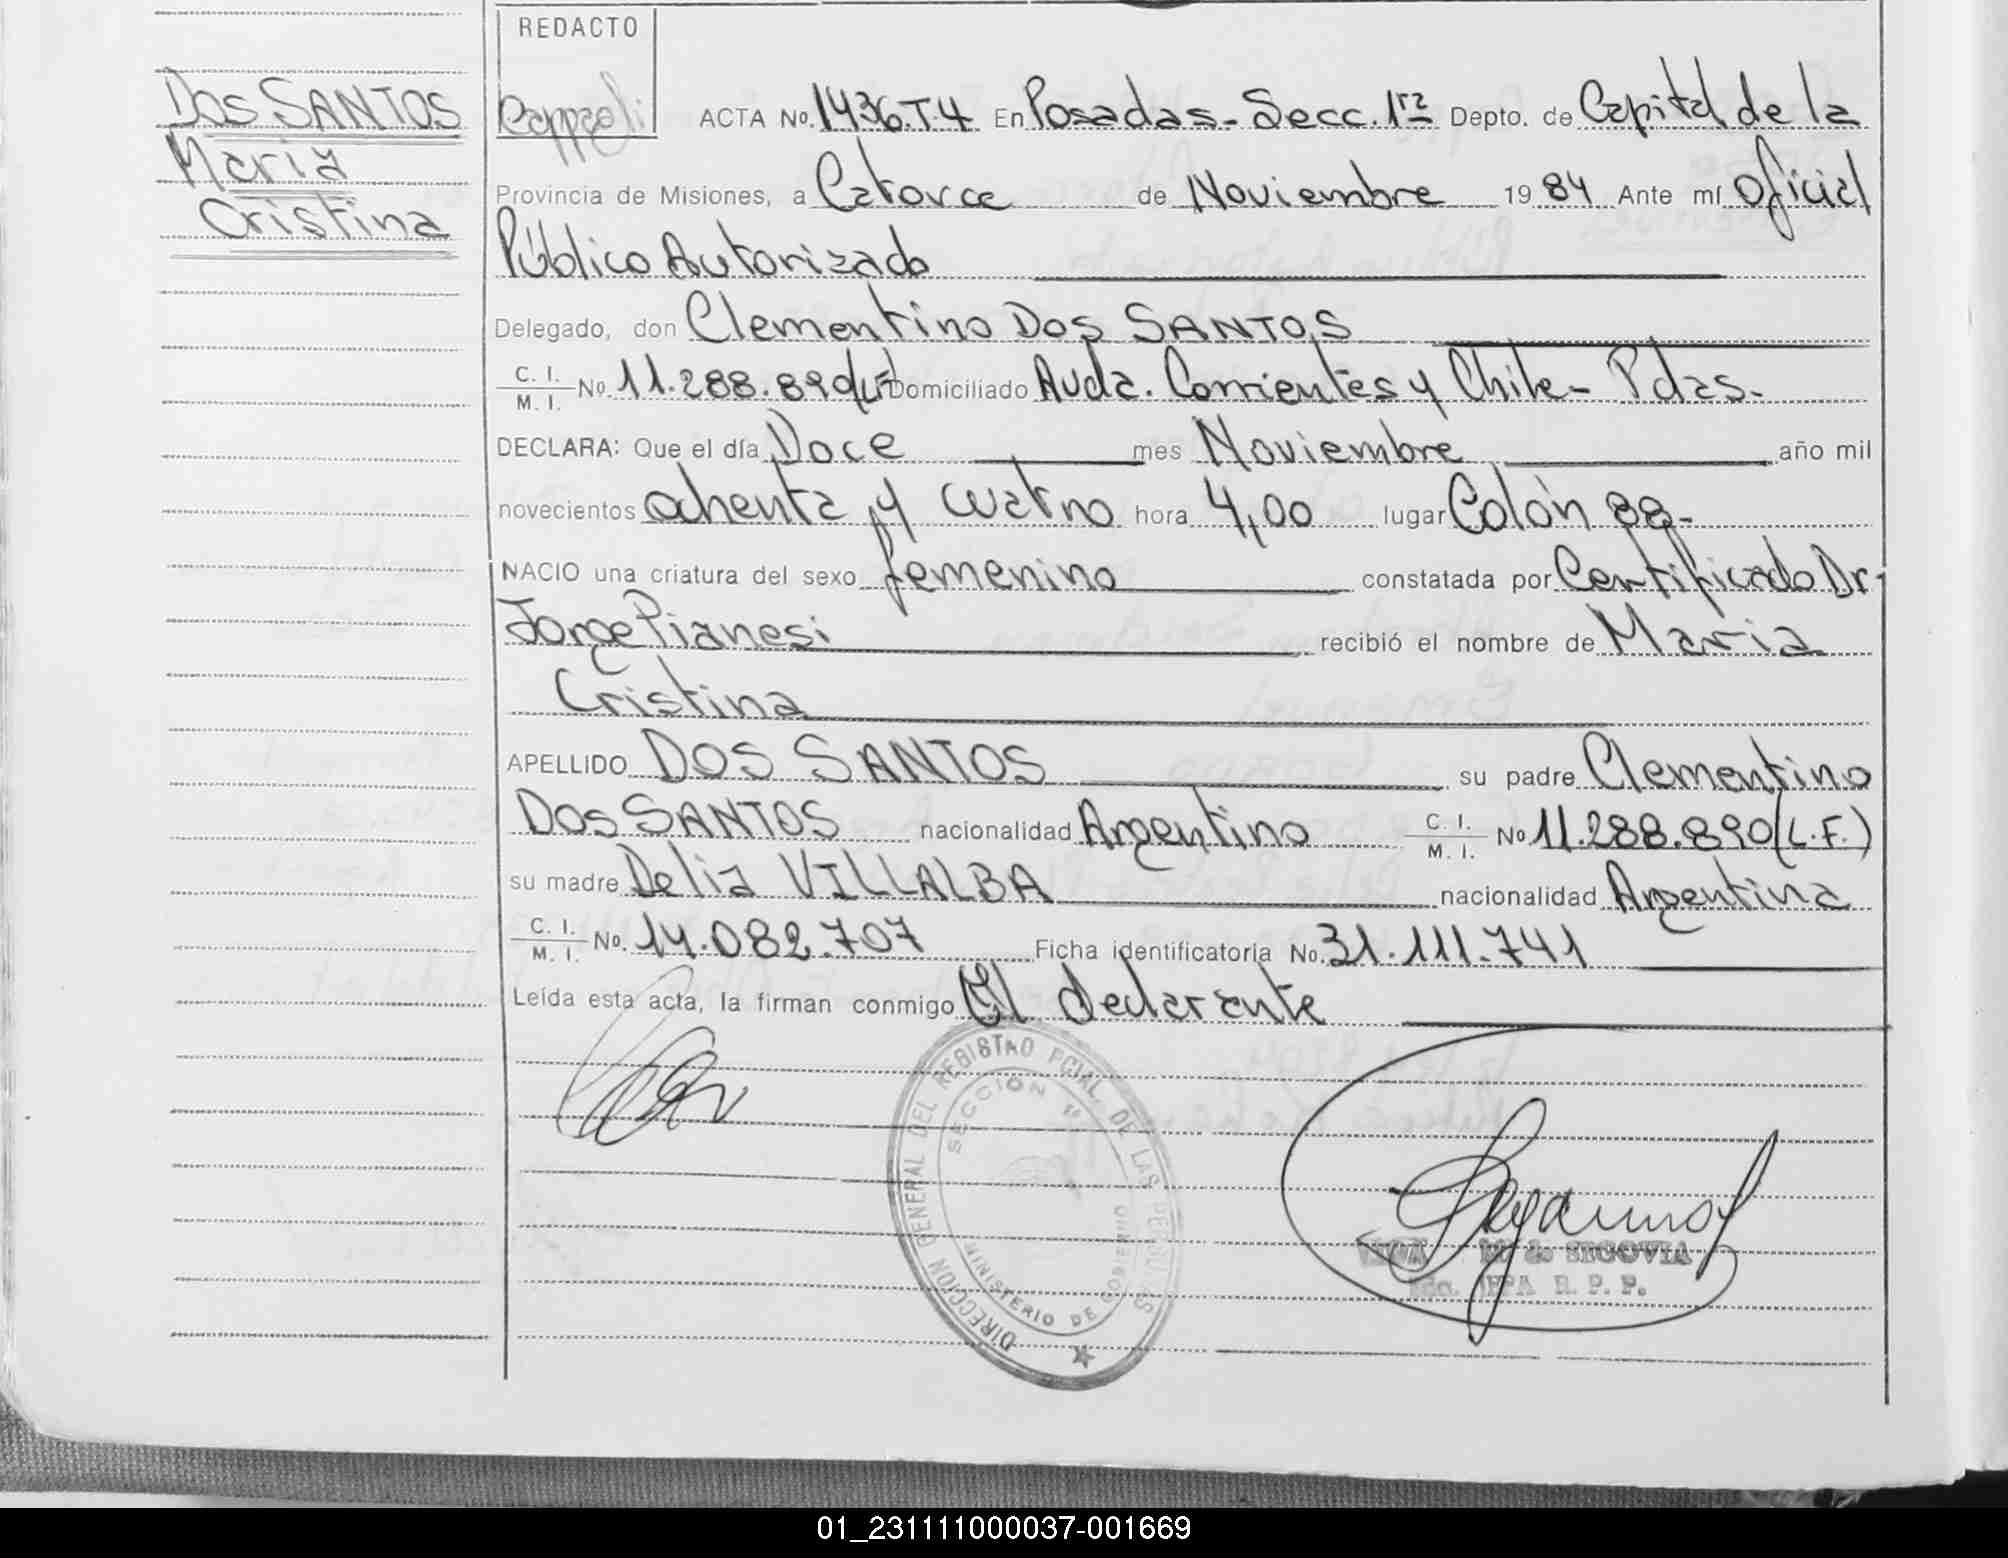 REDACTO
DOS SANTOS
Maria
Cristina
ACTA No. 1436.T.4 En Posadas-Secc. 1ra Depto. de Capital de la
Provincia de Misiones, a Catorce de Noviembre 19 84 Ante mí Oficial
Público Autorizado
Delegado, don Clementino DOS SANTOS
C. I.
M. I. No. 11.288.890 Domiciliado Avda. Corrientes y Chile - Pdas.
DECLARA: Que el día Doce mes Noviembre año mil
novecientos ochenta y cuatro hora 4,00 lugar Colón 88-
NACIO una criatura del sexo femenino constatada por Certificado Dr.
Jorge Pianesi recibió el nombre de Maria
Cristina
APELLIDO DOS SANTOS su padre Clementino
DOS SANTOS nacionalidad Argentino C. I. M. I. No 11.288.890 (L.F.)
su madre Delia VILLALBA nacionalidad Argentina
C. I.
M. I. No. 14.082.707 Ficha identificatoria No. 31.111.741
Leída esta acta, la firman conmigo El declarante
DIRECCION GENERAL DEL REGISTRO PCIAL. DE LAS PERSONAS
SECCION
MINISTERIO DE GOBIERNO
SEGOVIA
R. P. P.
01_231111000037-001669